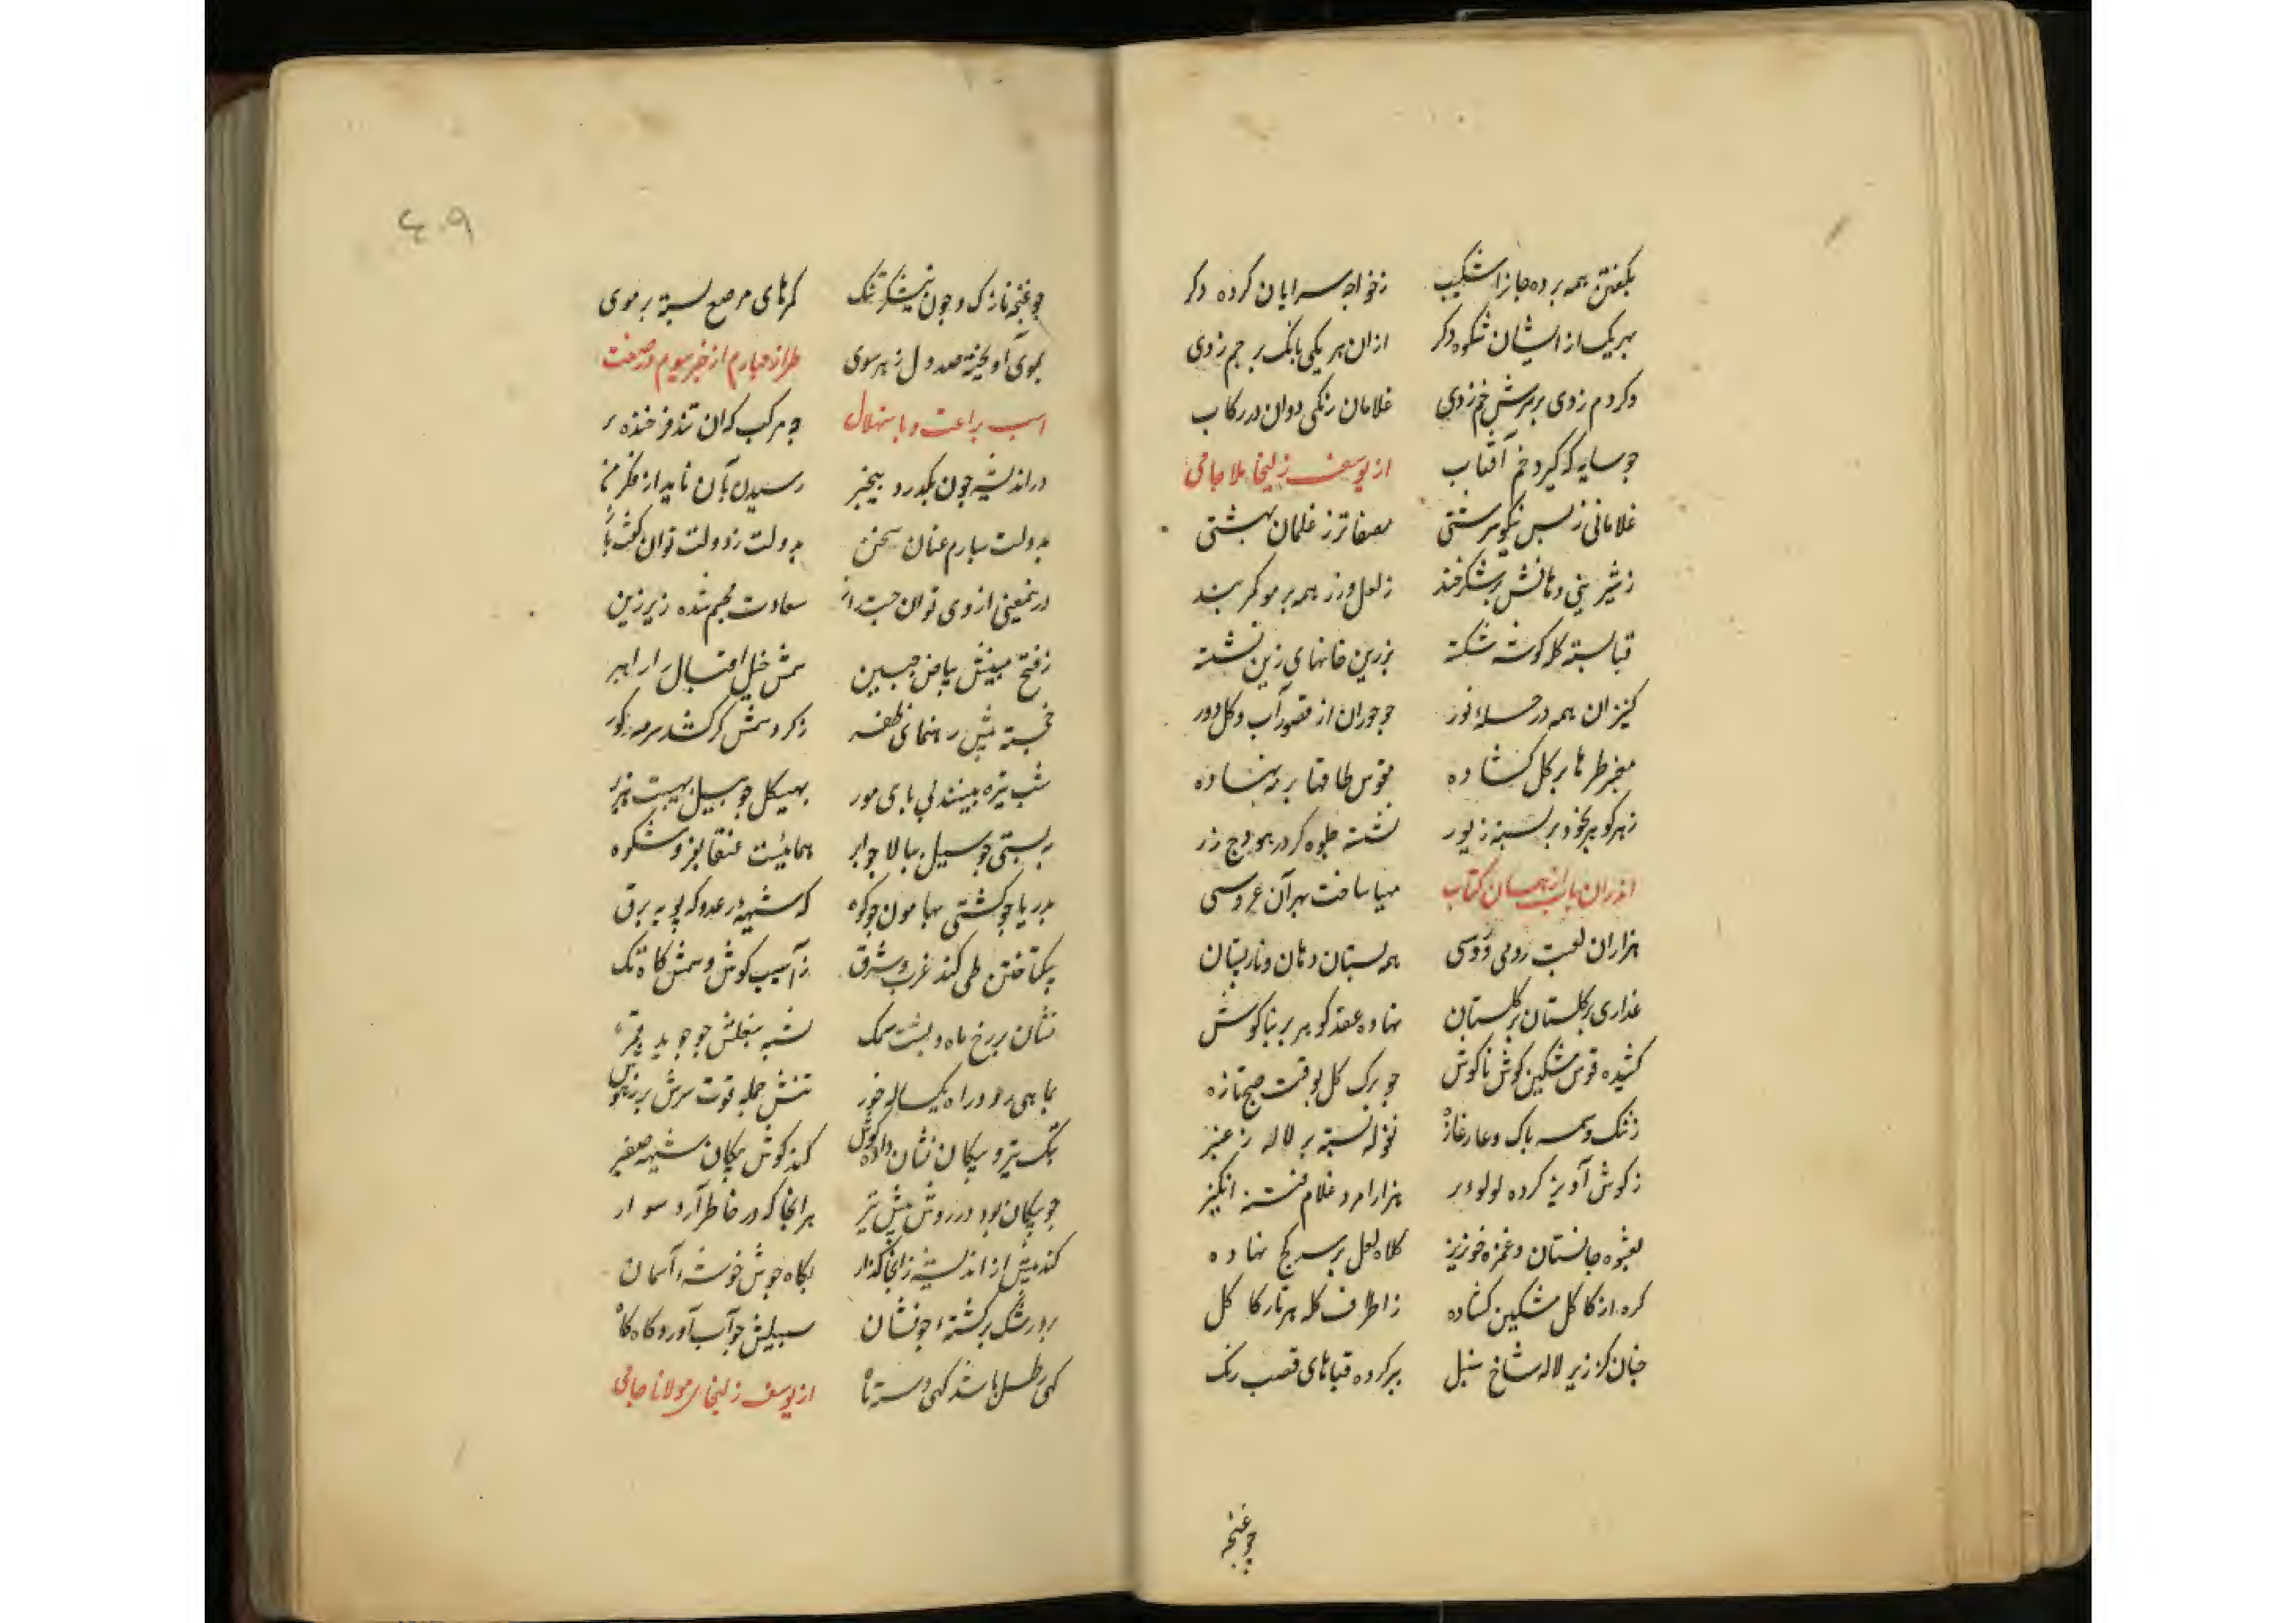 بکفتن همه برده جانرا شکیب زخواجه سرایان کرده دکر
بهر یک از ایشان شکوه دکر ازان هر یکی بانک بر جم زدی
وکر دم زدی بر سرش خم زدی غلامان زنکی دوان در رکاب
جو سایه که کیرد خم آفتاب از یوسف زلیخا ملا جامی
غلامانی زبس نیکو سرشتی مصفاتر ز غلمان بهشتی
ز شیرینی دهانش بر شکرخند ز لعل و زر همه بر مو کمر بند
قبا بسته کله کوشه شکسته بزرین خانهای زین نشسته
کنیزان همه در حسله نور جو حوران از قصور آب و کل دور
معنبر طرها بر کل کشاده مقوس طاقها بر مه نهاده
زهر کوهر بخود بر بسته زیور نشسته جلوه کر در هودج زر
اندران باب از همان کتاب مهیا ساخت بهر آن عروسی
هزاران لعبت رومی و روسی همه بستان دهان و نار پستان
عذاری بر کلستان بر کلستان نهاده عقد کوهر بر بناکوش
کشیده قوس مشکین کوش تا کوش جو برک کل بوقت صبح تازه
ز ننک وسمه پاک و عار غازه نغوله بسته بر لاله ز عنبر
ز کوش آویز کرده لولو در هزار امرد غلام فتنه انکیز
بعشوه جانستان و غمزه خونریز کلاه لعل بر سر کج نهاده
کره از کاکل مشکین کشاده ز اطراف کله هر تار کاکل
جنان کز زیر لاله شاخ سنبل ببر کرده قباهای قصب رنک
جو غنجه
٤٠٩
جو غنجه نازک و جون نیشکر تنک کمرهای مرصع بسته بر موی
بموی آویخته صد دل ز هر سوی طراز جهارم از خبر سیوم در صفت
اسب براعت و با ستهلال جه مرکب که ان تند فرخنده
در اندیشه جون بکدرد بیخبر رسیدن بآن ناید از فکر
بدولت سپارم عنان سخن بدولت ز دولت توان
در نمعنی از وی توان جست سعادت مجسم شده زیر زین
ز فتح مبینش بیاض جبین سمش خیل اقبال را راهبر
خجسته پیش رهنمای ظفر ز کرد سمش کر کشد سرمه کور
شب تیره بیند پی پای مور بهیکل جو پیل بهیبت هزبر
به پستی جو سیل ببالا جو ابر هما هیئت عنقا بفر و شکوه
بدریا جو کشتی بهامون جو کوه که شیهه رعد و که پویه برق
بیکتاختن طی کند غرب و شرق ز آسیب کوش و سمش کاه تک
نشان بر رخ ماه و پشت سمک
تنش جمله قوت سرش پر ز هوش
بتک تیر و پیکان نشان داده کوش کند کوش پیکان شیهه صفیر
جو پیکان بود در روش پیش تیر بر انجا که در خاطر آرد سوار
کند پیش از اندیشه زانجا کذار بکاه جوش خوشه آسمان
سبیلش جو آب آورد کاه
از یوسف زلیخای مولانا جامی